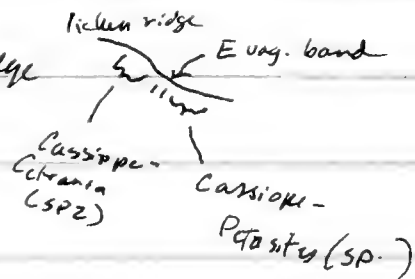 lichen ridge
E vag. band
Cassiope-
Cetraria
(sp2)
Cassiope-
Petasites (sp. )